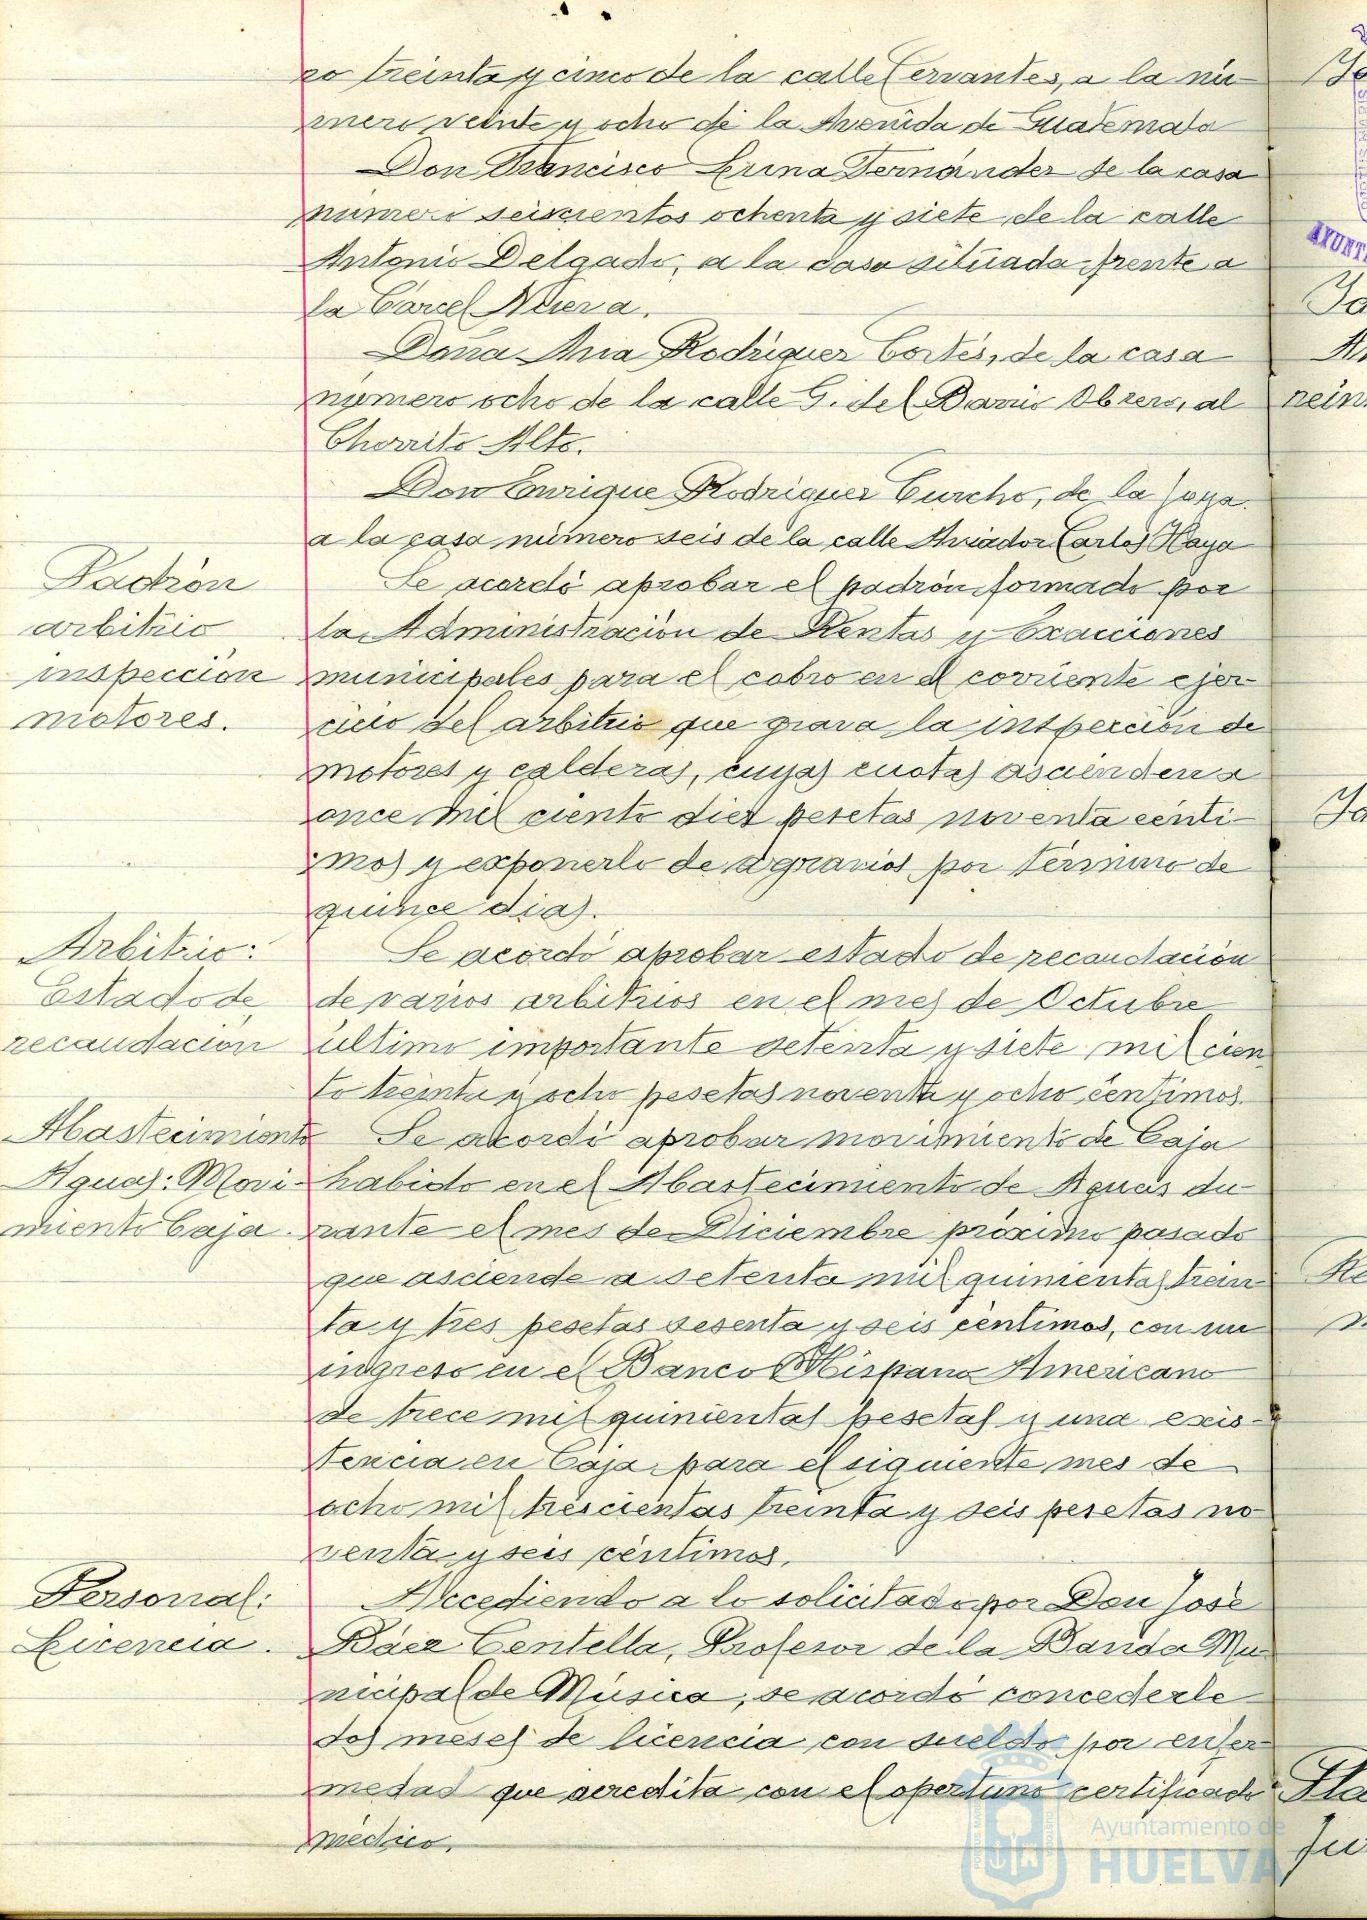 ro treinta y cinco de la calle Cervantes, a la nú-
mero veinte y ocho de la Avenida de Guatemala
Don Francisco Luna Fernández de la casa
número seiscientos ochenta y siete de la calle
Antonio Delgado, a la casa situada frente a
la Cárcel Nueva.
Doña Ana Rodríguez Cortés, de la casa
número ocho de la calle G. del Barrio Obrero, al
Chorrito Alto.
Don Enrique Rodríguez Curcho, de la Joya
a la casa número seis de la calle Aviador Carlos Haya
Padrón
arbitrio
inspección
motores.
Se acordó aprobar el padrón formado por
la Administración de Rentas y Exacciones
municipales para el cobro en el corriente ejer-
cicio del arbitrio que grava la inspección de
motores y calderas, cuyas cuotas ascienden a
once mil ciento diez pesetas noventa cénti-
mos y exponerlo de agravios por término de
quince dias.
Arbitrio:
Estado de
recaudación
Se acordó aprobar estado de recaudación
de varios arbitrios en el mes de Octubre
último importante setenta y siete mil cien
to treinta y ocho pesetas noventa y ocho céntimos.
Abastecimiento
Aguas: Movi-
miento Caja.
Se acordó aprobar movimiento de Caja
habido en el Abastecimiento de Aguas du-
rante el mes de Diciembre próximo pasado
que asciende a setenta mil quinientas trein
ta y tres pesetas sesenta y seis céntimos, con un
ingreso en el Banco Hispano Americano
de trece mil quinientas pesetas y una exis-
tencia en Caja para el siguiente mes de
ocho mil trescientas treinta y seis pesetas no
venta y seis céntimos.
Personal:
Licencia.
Accediendo a lo solicitado por Don José
Báez Centella, Profesor de la Banda Mu-
nicipal de Música, se acordó concederle
dos meses de licencia con sueldo por enfer-
medad que acredita con el oportuno certificado
médico.
Ayuntamiento de
HUELVA